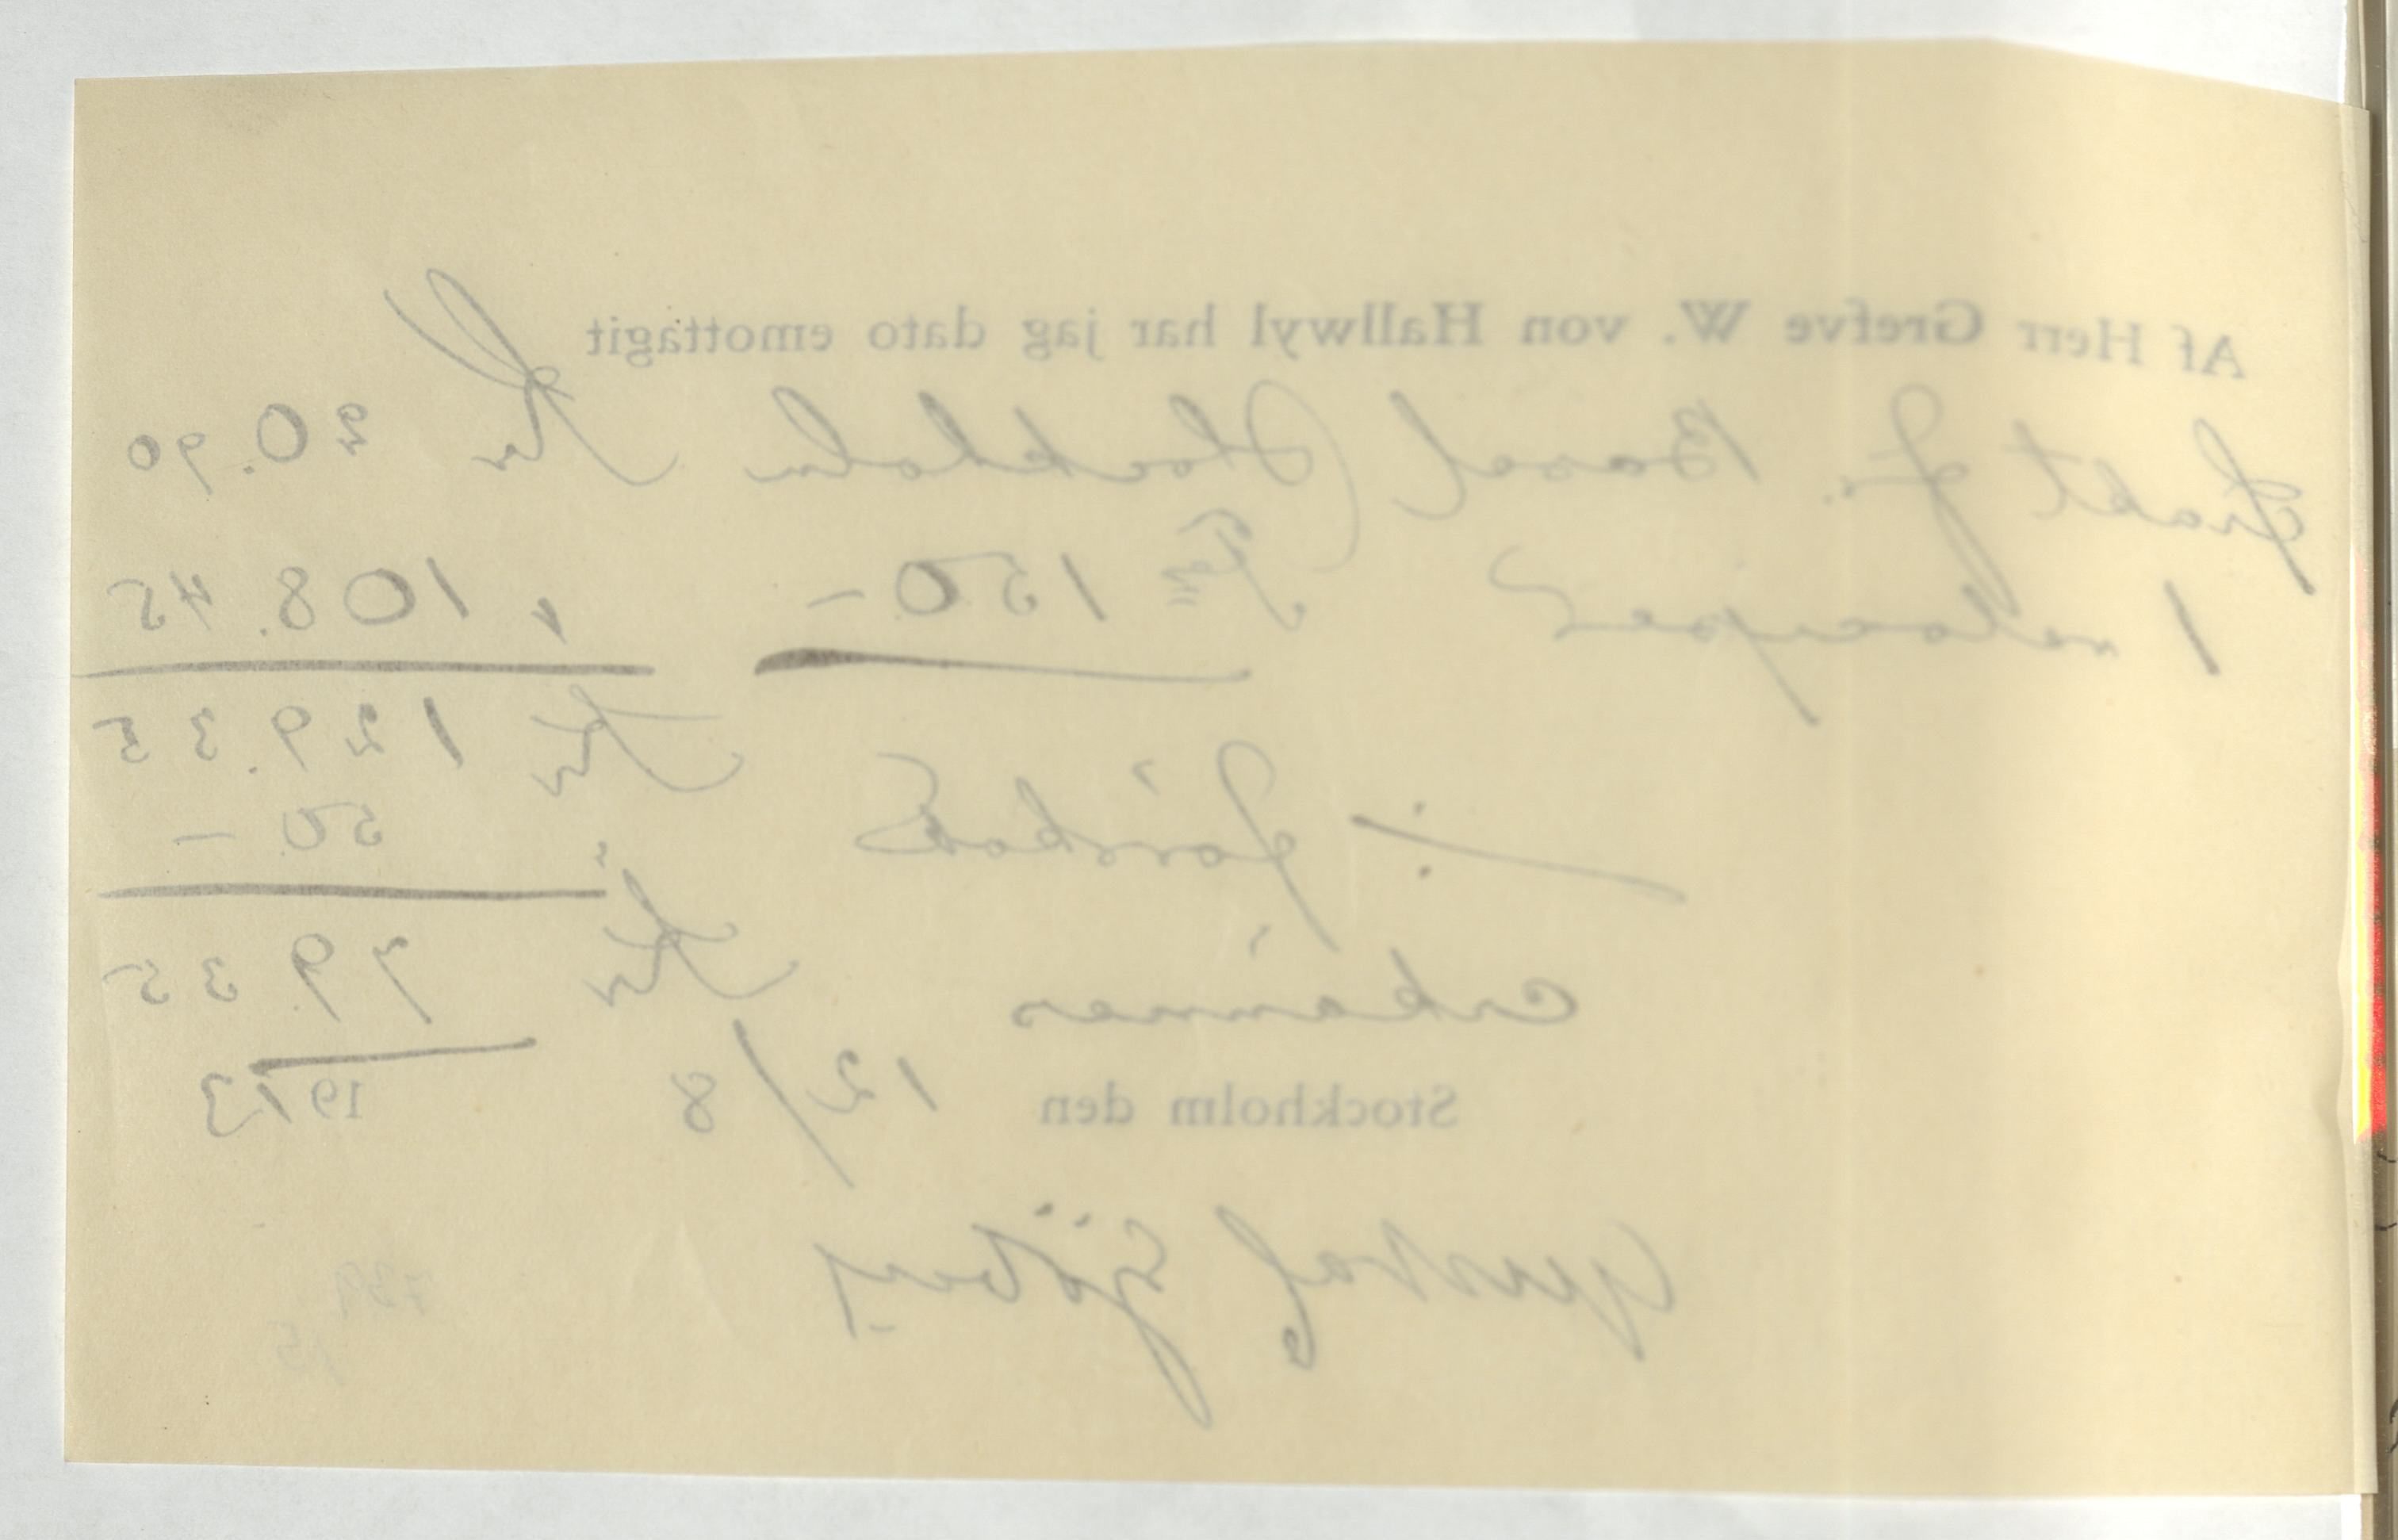 Af Herr Grefve W. von Hallwyl har jag dato emottagit
frakt fr. Basel Stockholm Kr 20.90
1 150 - " 108.45
Kr 129.35
÷ förskott " 50 -
Kr 79.35
erkännes
Stockholm den 12/8 1913
Gustaf Sjöberg